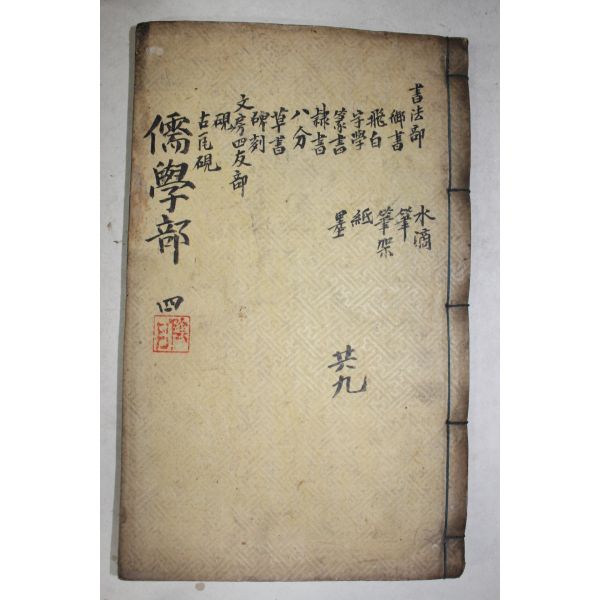 書法部
御書
飛白
字學
篆書
隸書
八分
草書
碑刻
文房四友部
硯
古瓦硯
水滴
筆
筆架
紙
墨
共九
儒學部
四